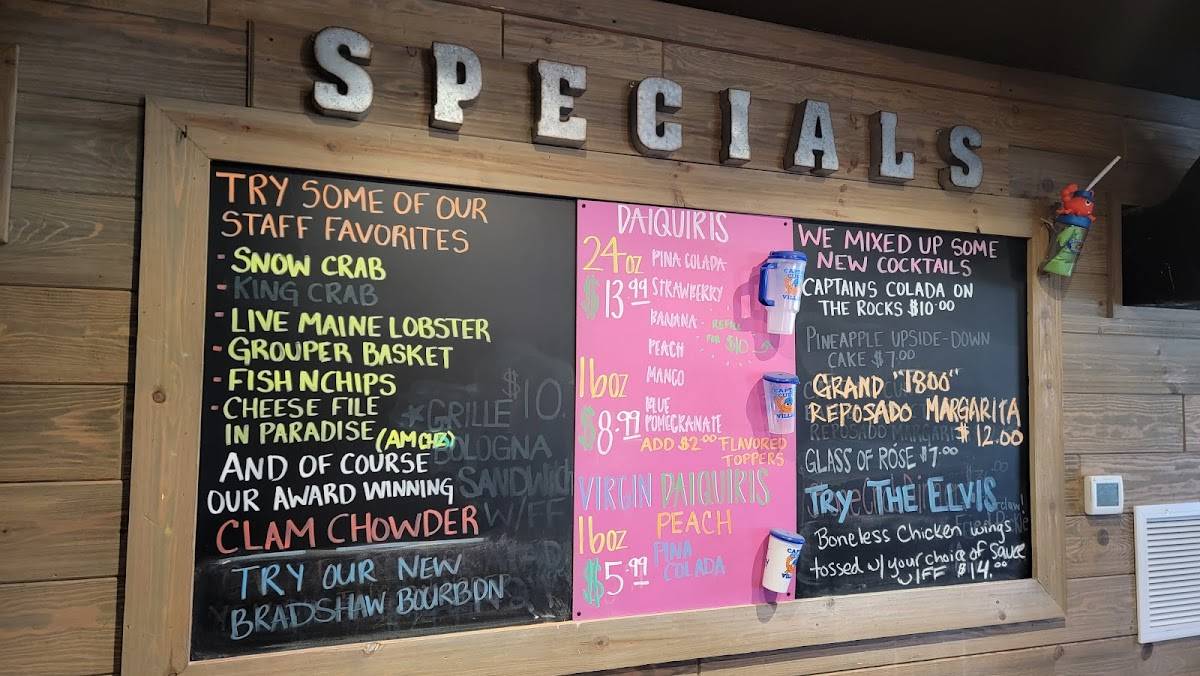 SPECIALS
TRY SOME OF OUR
STAFF FAVORITES
- SNOW CRAB
- KING CRAB
- LIVE MAINE LOBSTER
- GROUPER BASKET
- FISH N CHIPS
- CHEESE FILE
IN PARADISE (AM CHZ)
AND OF COURSE
OUR AWARD WINNING
CLAM CHOWDER
TRY OUR NEW
BRADSHAW BOURBON
$10.
*GRILLE
BOLOGNA
SANDWICH
W/FF
DAIQUIRIS
24oz PINA COLADA
$13.99 STRAWBERRY
BANANA
REFILL
FOR $10
PEACH
16oz MANGO
$8.99 BLUE
POMEGRANATE
ADD $2.00 FLAVORED
TOPPERS
VIRGIN DAIQUIRIS
16oz PEACH
$5.99 PINA
COLADA
WE MIXED UP SOME
NEW COCKTAILS
CAPTAINS COLADA ON
THE ROCKS $10.00
PINEAPPLE UPSIDE-DOWN
CAKE $7.00
GRAND "1800"
REPOSADO MARGARITA
$12.00
GLASS OF ROSE $7.00
TRY THE ELVIS
Boneless Chicken wings
tossed w/ your choice of sauce
w/FF $14.00